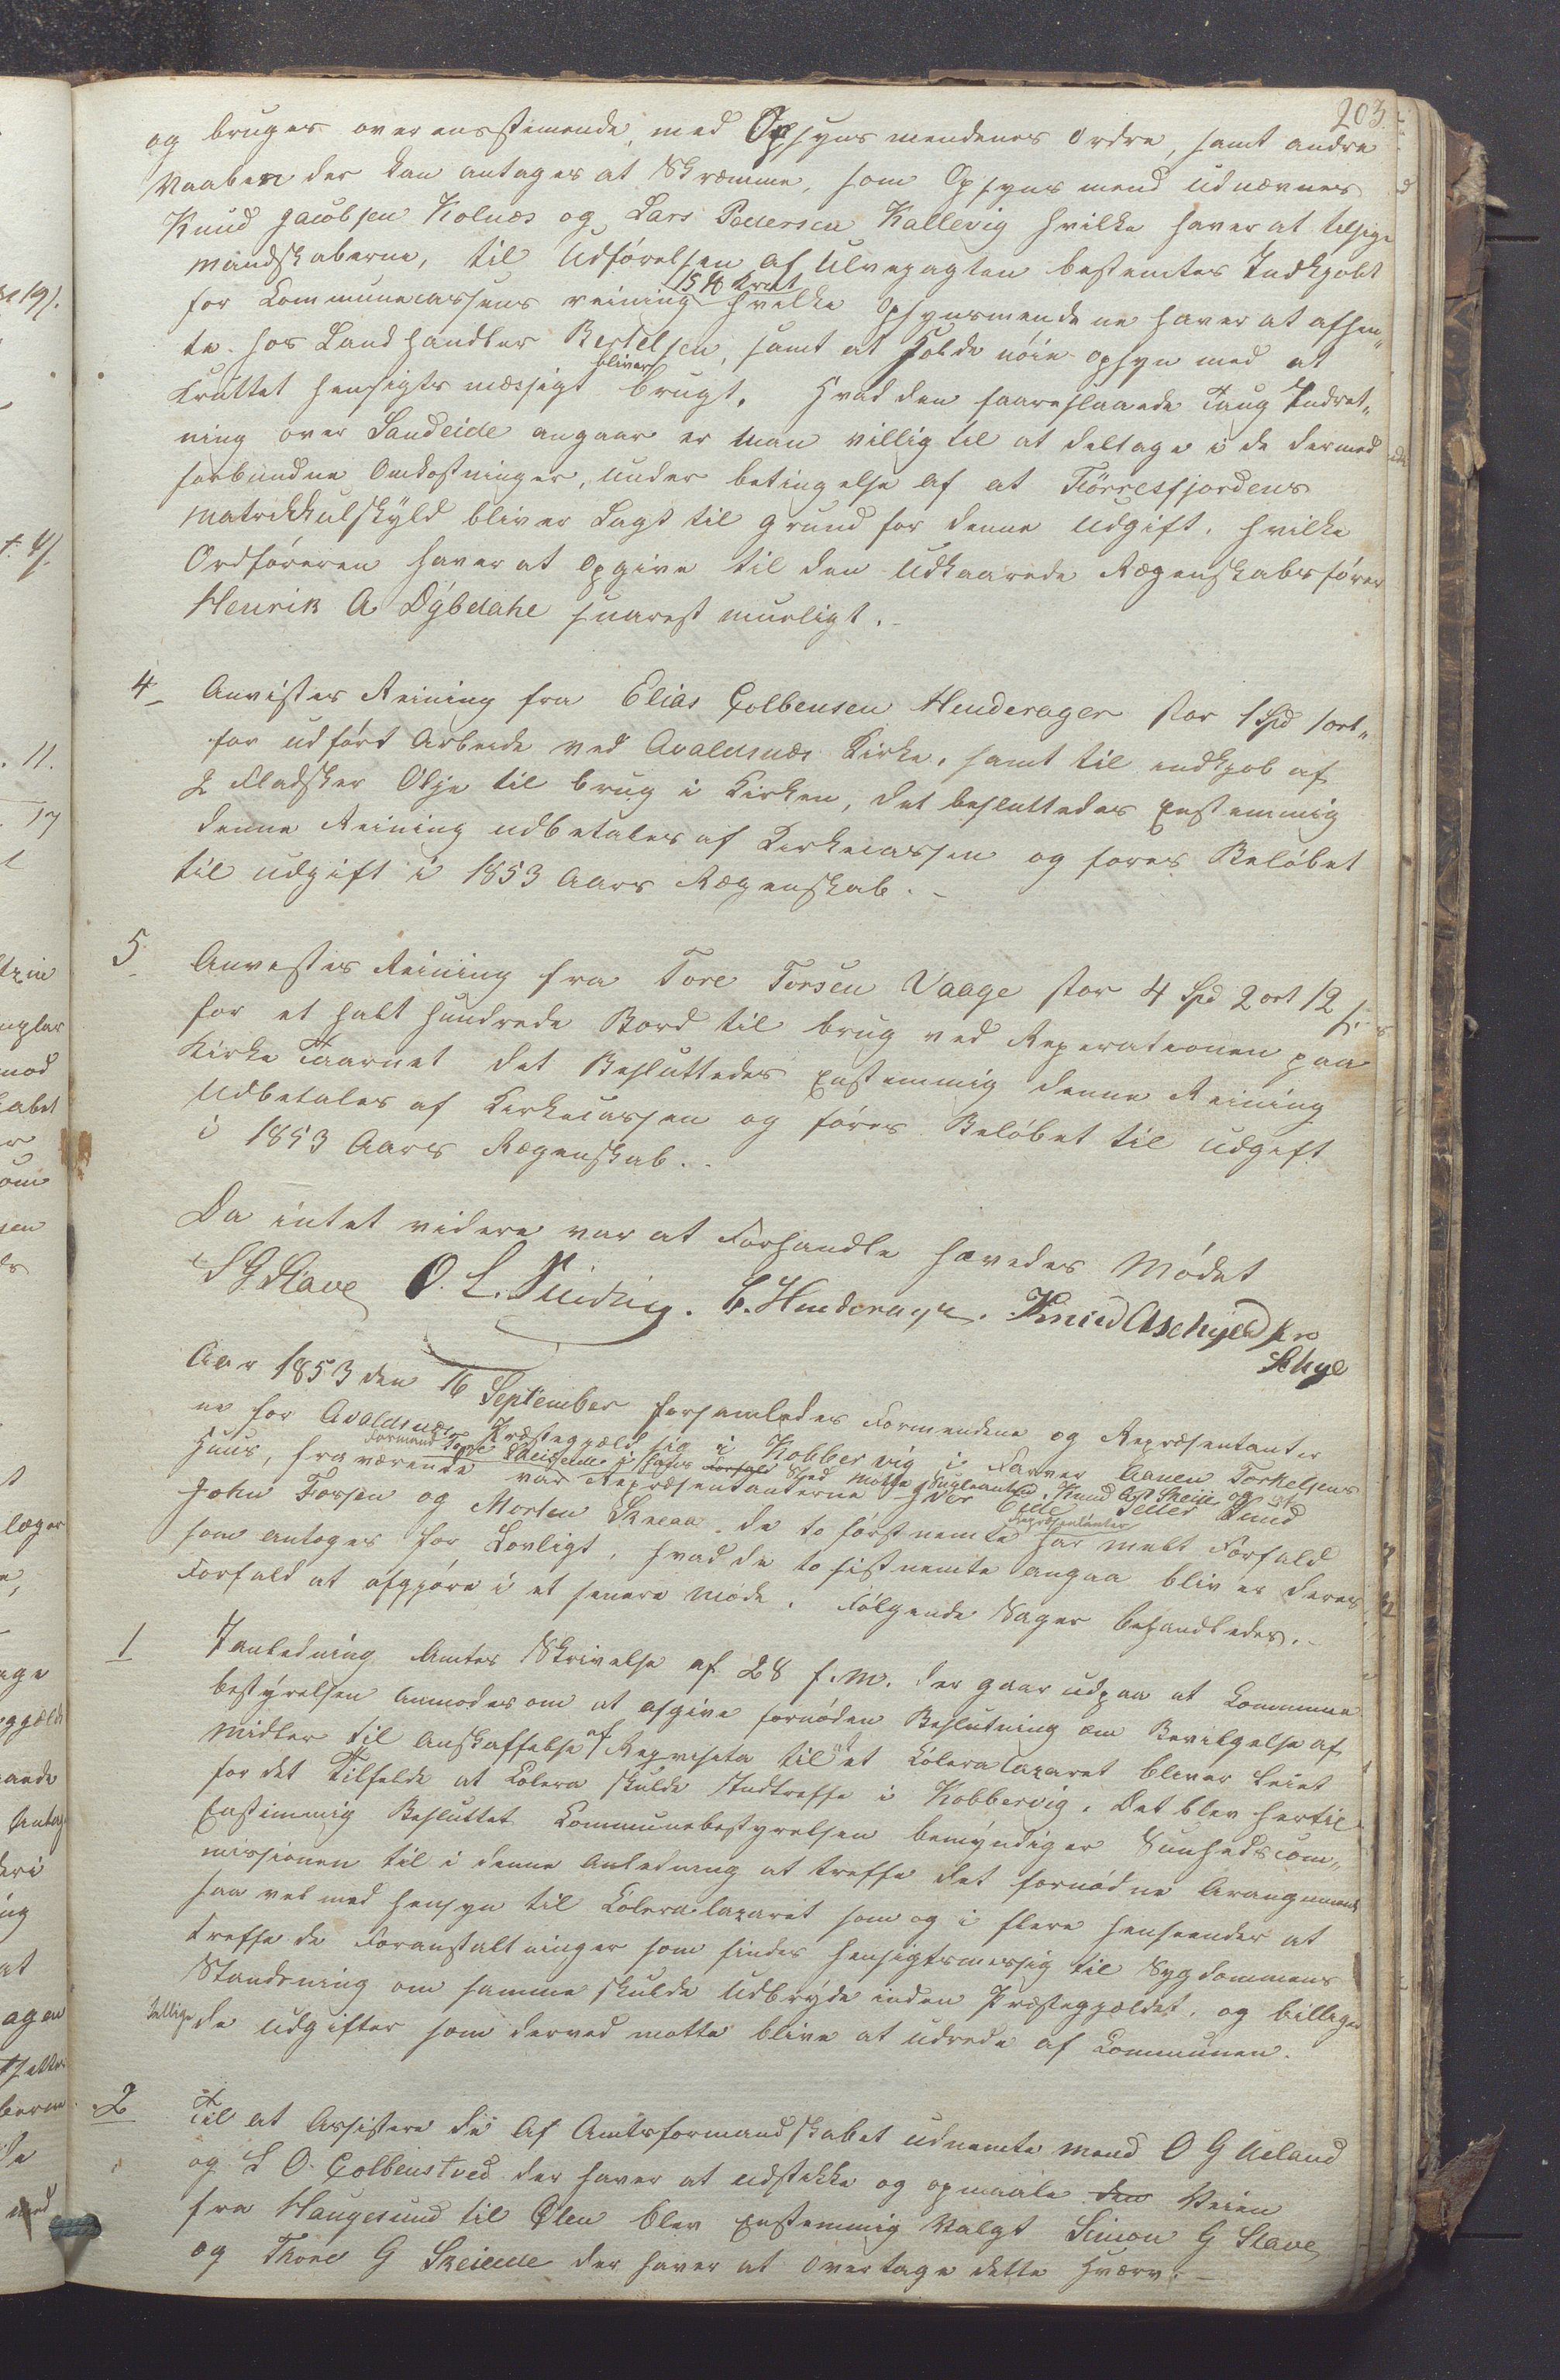 203
og bruges overensstemende med Opsynsmendenes Ordre, samt andre
Vaaben der kan antages at Skræmme, som Opsynsmend udnævnes
Knud Jacobsen Kolnæs og Lars Pedersen Kallevig hvilke haver at tilsige
mandskaberne, til Udførelsen af Ulvejagten bestemtes Indkjøbt
for Communecassens reining 15 ℔ Krut hvilke Opsynsmendene haver at afhen„
te hos Landhandler Bertelsen, samt at holde nøie opsyn med at
Kruttet hensigtsmæssigt bliver brugt. Hvad den foareslaaede Taug Indret„
ning over Sandeide angaar er Man villig til at deltage i de dermed
forbundne Omkostninger, under betingelse af at Førresfjordens
Matrikkulskyld bliver Lagt til grund for denne Udgift. hvilke
Ordføreren haver at Opgive til den Udkaarede Regenskabsfører
Henrik A Dybdahl snarest mueligt.
4 Anvistes Reining fra Elias Colbensen Henderager stor 1 Spd 1 ort„
for udført Arbeide ved Avaldsnæs Kirke, samt til indkjøb af
2 Fladsker Olje til brug i Kirken, det besluttedes Enstemmig
denne Reining udbetales af Kirkecassen og føres Beløbet
til udgift i 1853 Aars Regenskab.
5 Anvistes Reining fra Tore Torsen Vaage stor 4 Spd 2 ort 12 s.
for et halt hundrede Bord til brug ved Reperationen paa
Kirke Taarnet det Besluttedes Enstemmig denne Reining
Udbetales af Kirkecassen og føres Beløbet til Udgift
i 1853 Aars Regenskab.
Da intet videre var at Forhandle hævedes Mødet
S G Stave O. L. Qvidvig. E. Henderager. Knud Aschjeldsen
Skeje
Aar 1853 den 16 September forsamledes Formendene og Repræsentanter
ne for Avaldsnæs Præstegjæld sig i Kobbervig i Farver Aanen Torkelsens
Huus, fraværende Formand Tore Skeiselde i hans Forfald Sted Møtte Supleanten Knud Asf Skeiie og
var Repræsentanterne Iver Eide Peder Sund
John Fossen og Morten Skeaa. de to førstnemte Repræsentanter har meldt Forfald
som antages for Lovligt, hvad de to sistnemte angaa bliver deres
Forfald at afgjøre i et senere møde. Følgende Sager behandledes.
1 I anledning Amtes Skrivelse af 28 f. M. der gaar udpaa at Commune
bestyrelsen anmodes om at afgive fornøden Beslutning om Bevilgelse af
Midler til Anskaffelse af Requisita til at et Colera Lazaret bliver Leiet
for det Tilfelde at Colera skulde Indtreffe i Kobbervig. Det blev hertil
Enstimmig Besluttet Communebestyrelsen bemyndiger Sunhedscom„
missionen til i denne Anledning at treffe det fornødne Arangement
saa vel med hensyn til Coleralazaret som og i flere henseender at
treffe de Foranstaltninger som findes hensigtsmessig til Sygdommens
Standsning om samme skulde Udbryde inden Præstegjældet. og billiges
tillige de udgifter som derved motte blive at udrede af Communen.
2 Til at Assistere de af Amtsformandskabet udnemte Mend O G Ueland
og L O. Colbenstved der haver at udstikke og opmaale den Veien
fra Haugesund til Ølen blev Enstemmig Valgt Simon G Stave
og Thore G Skeielle der haver at Overtage dette Hværv.